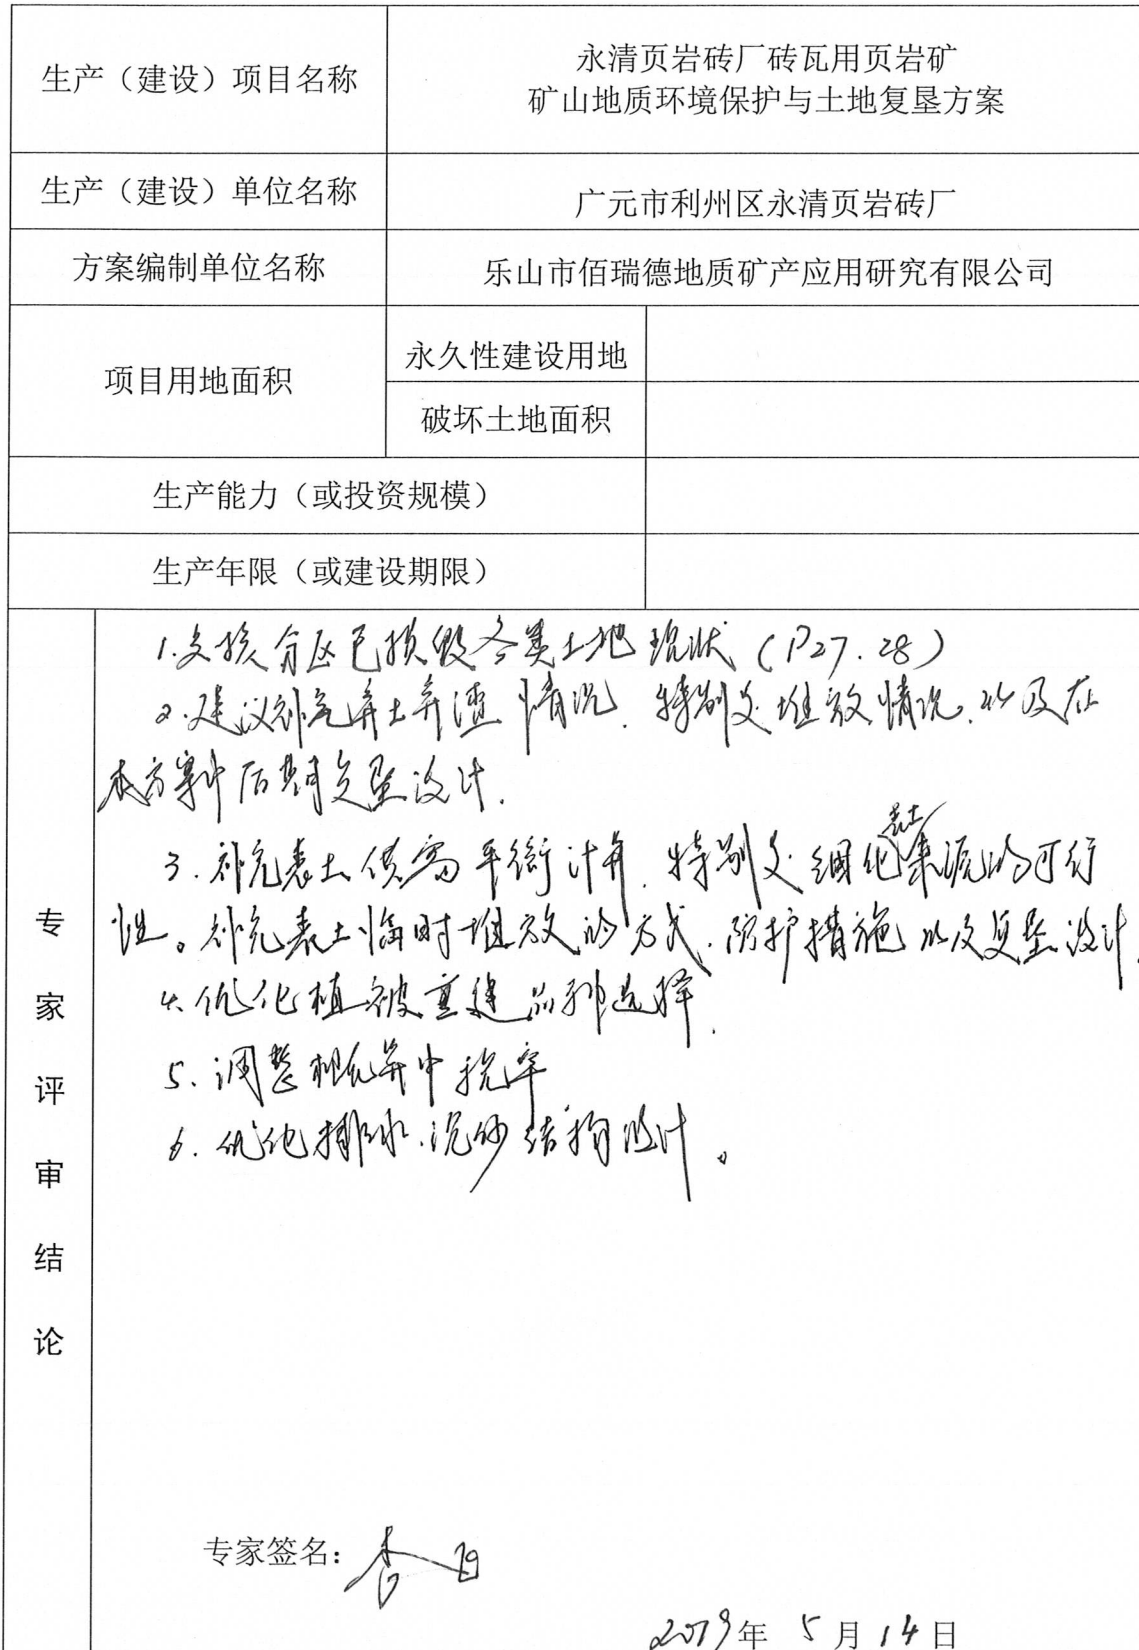 生产（建设）项目名称
永清页岩砖厂砖瓦用页岩矿
矿山地质环境保护与土地复垦方案
生产（建设）单位名称
广元市利州区永清页岩砖厂
方案编制单位名称
乐山市佰瑞德地质矿产应用研究有限公司
项目用地面积
永久性建设用地
破坏土地面积
生产能力（或投资规模）
生产年限（或建设期限）
专家评审结论
1.复核分区已损毁各类土地现状（P27.28）
2.建议补充弃土弃渣情况.特别是堆放情况.以及在
本方案中后期复垦设计.
3.补充表土供需平衡计算.特别是细化表土来源的可行
性。补充表土临时堆放的方式.防护措施以及复垦设计.
4.优化植被重建品种选择.
5.调整概算中税率
6.优化排水.沉砂结构设计。
专家签名：
2019年5月14日